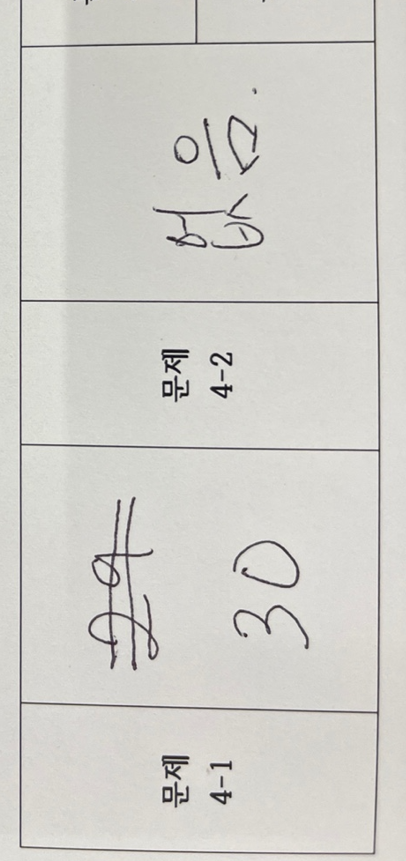 문제
4-1
29
30
문제
4-2
없음.